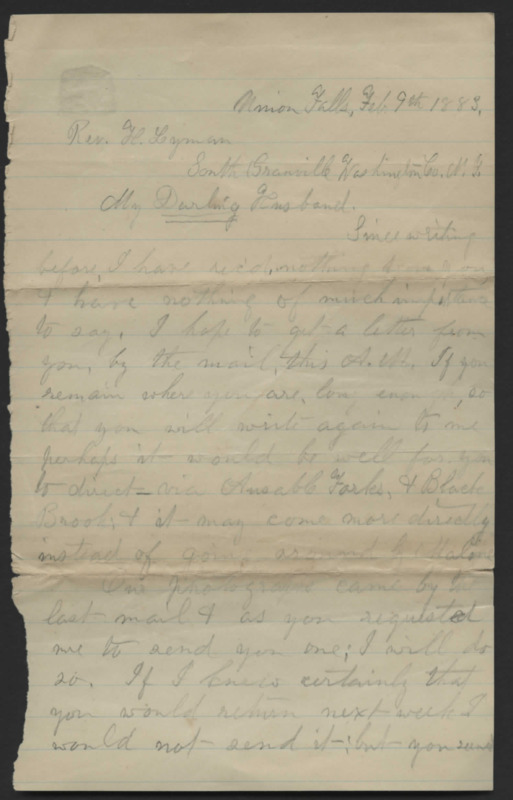 Union Falls, Feb. 9th 1883.
Rev. H. Lyman
South Granville Washington Co. N. Y.
My Darling Husband.
Since writing
before, I have rec'd nothing from you
& have nothing of much importance
to say. I hope to get a letter from
you, by the mail, this A.M. If you
remain where you are, long enough, so
that you will write again to me
perhaps it would be well for you
to direct via Ausable Forks, & Black
Brook, & it may come more directly
instead of going around by Malone
Our photographs came by the
last mail & as you requested
me to send you one; I will do
so. If I knew certainly that
you would return next week I
would not send it; but you